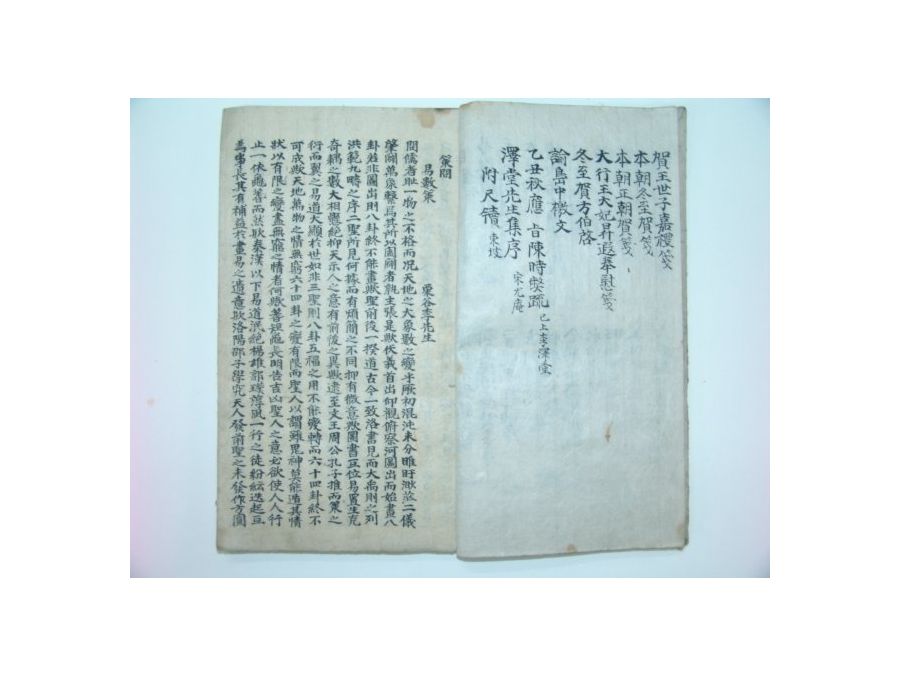 賀王世子嘉禮箋
本朝冬至賀箋
本朝正朝賀箋
大行王大妃昇遐奉慰箋
冬至賀方伯啓
諭島中檄文
乙丑秋應 旨陳時弊疏 已上李澤堂
澤堂先生集序 宋尤庵
附尺牘 東坡
策問
易數策 栗谷李先生
問儒者耻一物之不格而况天地之大象數之變乎厥初混沌未分睢盱漵茫二儀
肇闢萬象繄爲其所以圖闢者孰主張是歟伏羲首出仰觀俯察河圖出而始畫八
卦苟非圖出則八卦終不能畫歟聖前後一揆道古今一致洛書見而大禹則之列
洪範九疇之序二聖所見何據而有煩簡之不同抑有微意歟圖書互位易置生克
奇耦之數大相懸絶抑天示人之意有前後之異歟逮至文王周公孔子推而策之
衍而翼之易道大顯於世如非三聖則八卦五福之用不能變轉而六十四卦終不
可成歟天地萬物之情無窮六十四卦之變有限而聖人以謂雖鬼神莫能遁其情
狀以有限之變盡無窮之情者何歟蓍短龜長明告吉凶聖人之意必欲使人人行
止一依龜蓍而然歟秦漢以下易道泯絶楊雄郭璞淳風一行之徒紛紜迭起亘
其有補益於畫易之遺意歟洛陽邵子學究天人發前聖之未發作方圓